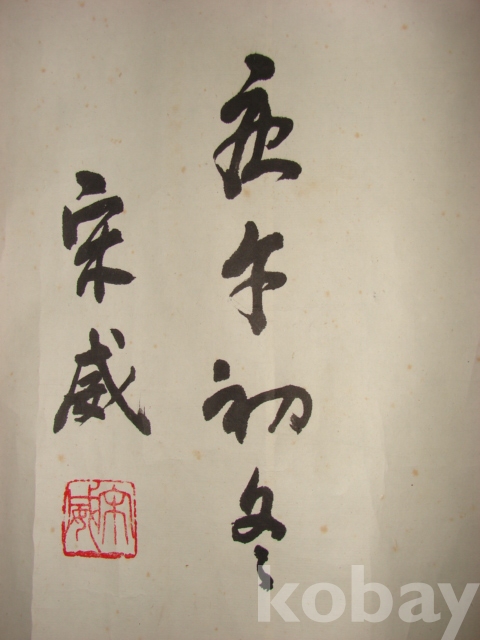 庚午初冬
宋威
宋威
kobay